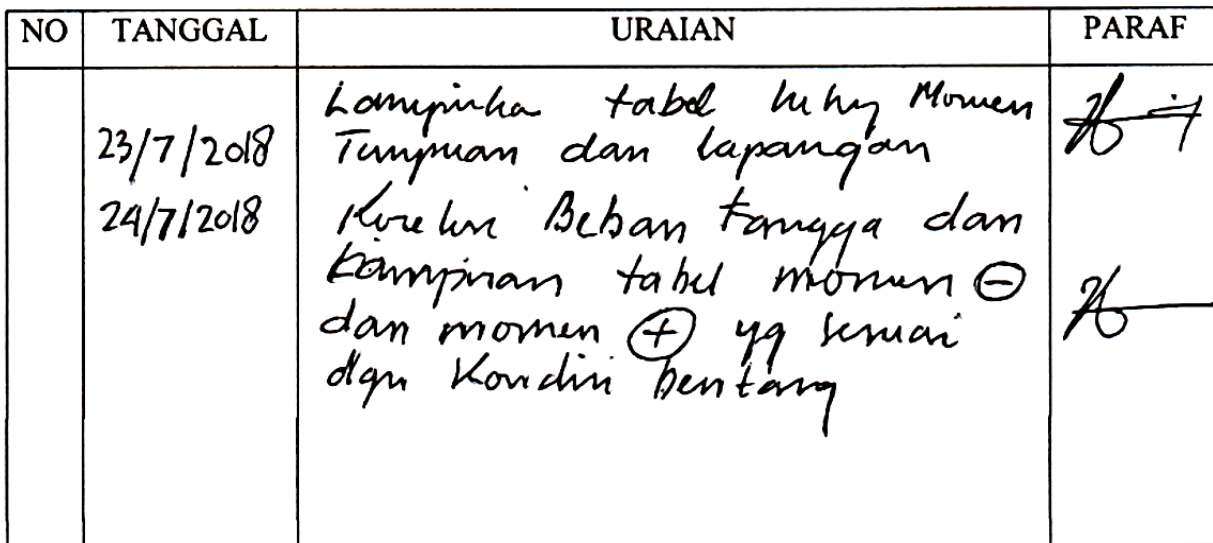 NO TANGGAL URAIAN PARAF
Lampirka tabel Momen
23/7/2018 Tumpuan dan lapangan
24/7/2018 Koreksi Beban tangga dan
Lampiran tabel momen ⊖
dan momen ⊕ yg sesuai
dgn Kondisi bentang